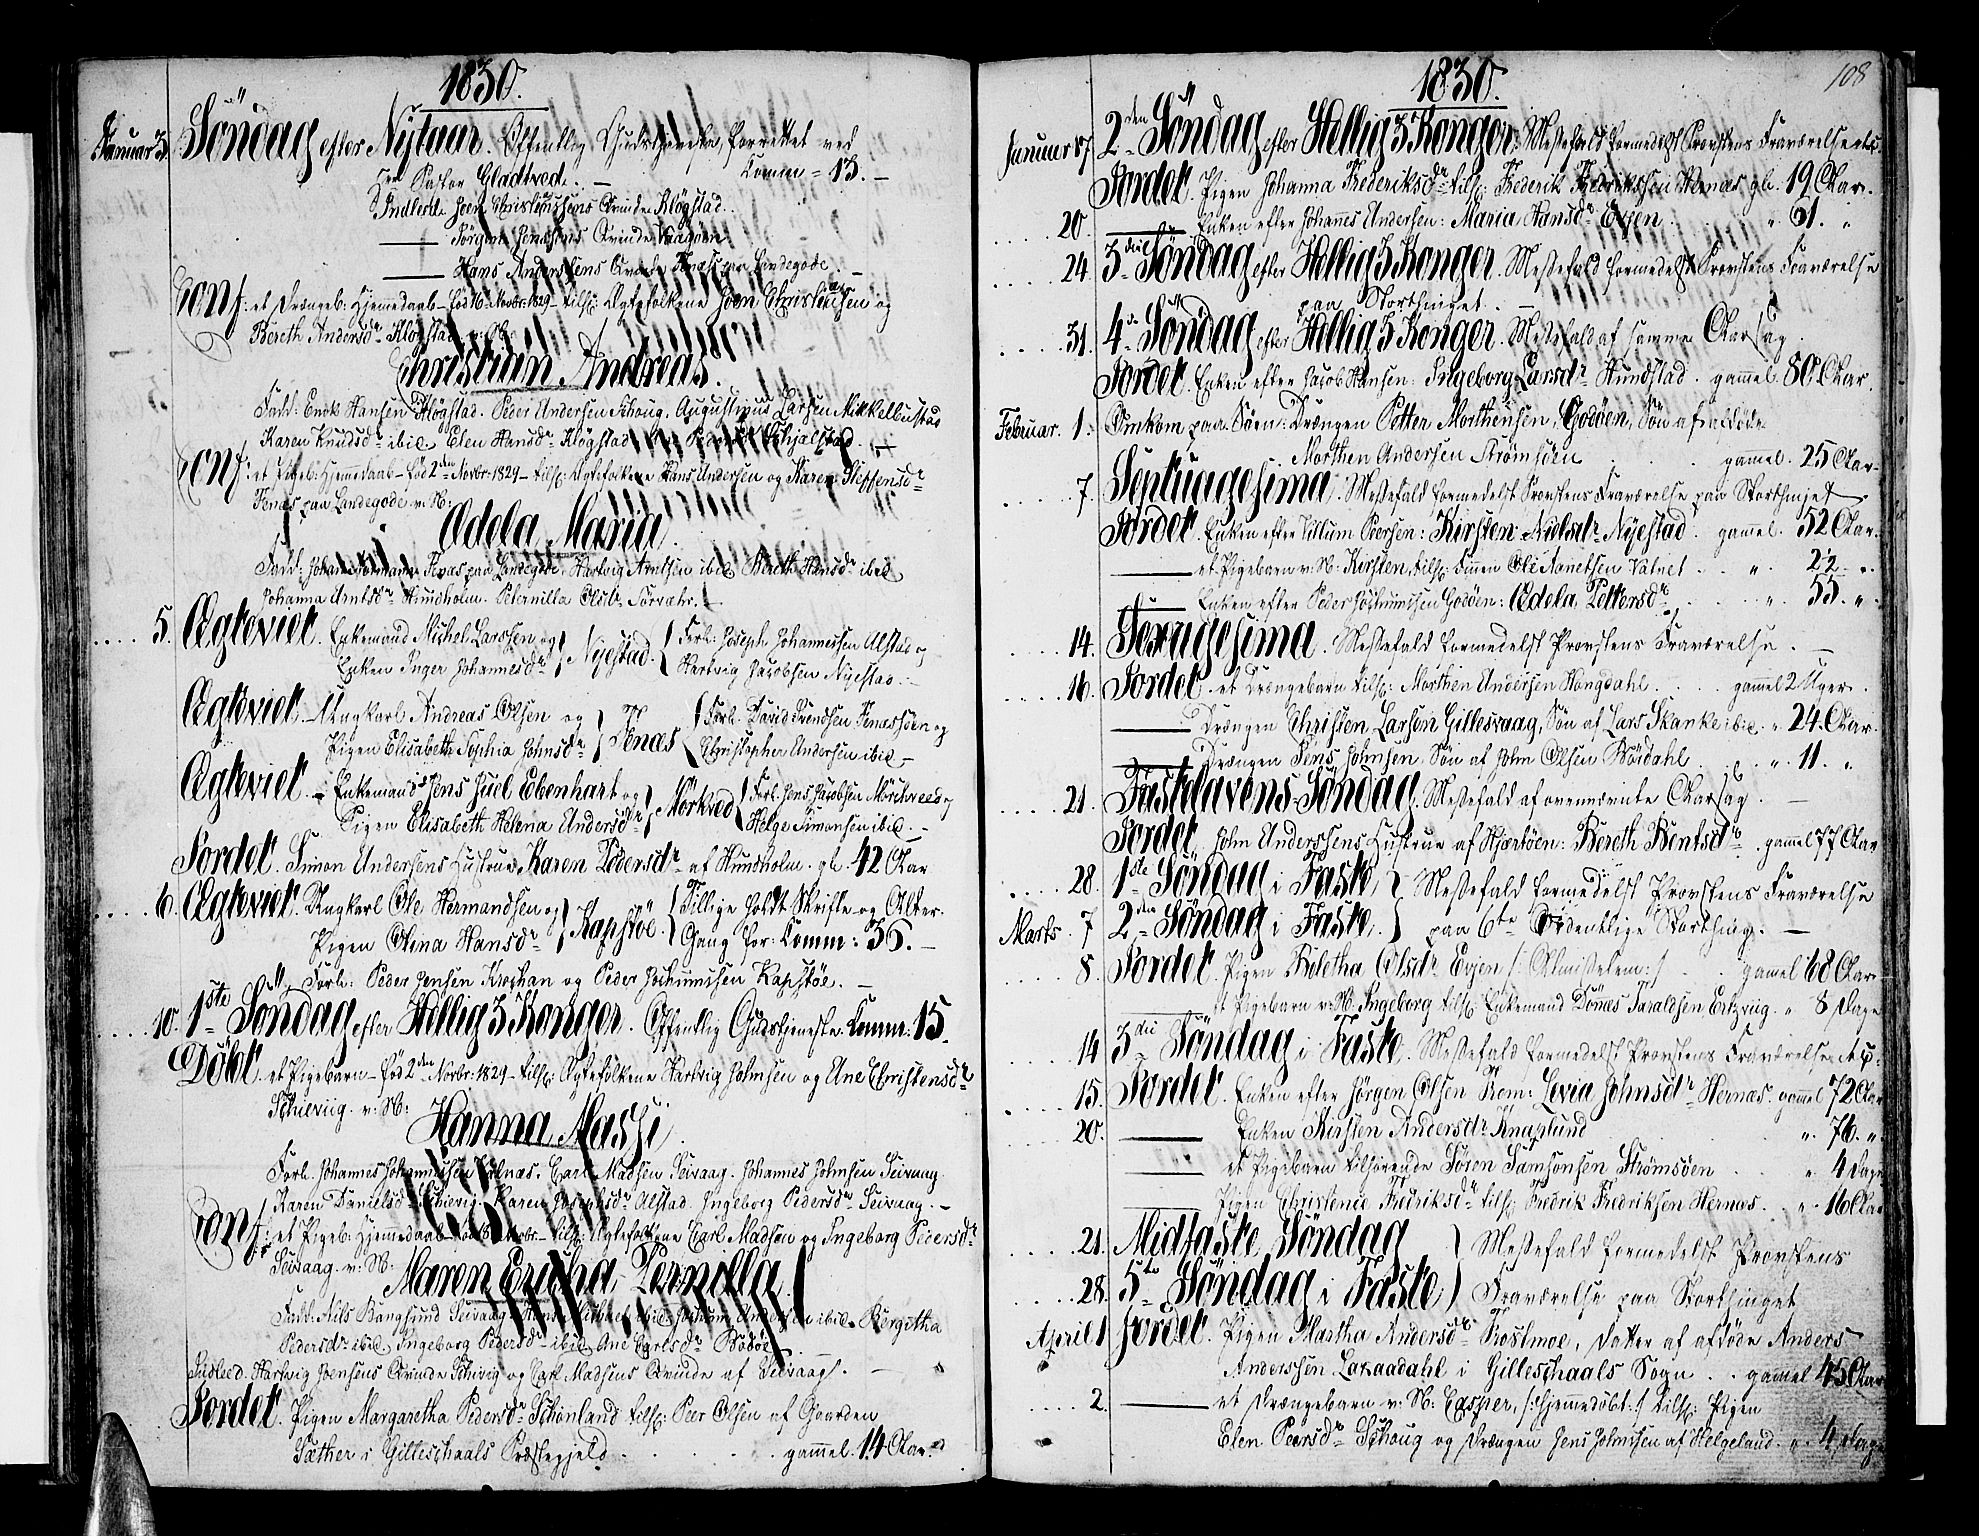 1830.
Januar 3. Söndag efter Nytaar. Offentlig Gudstjeneste, forrettet ved
Hr: Pastor Gladtved. — Comm = 13. —
Indledte Joen Christensens Qvinde Kløgstad.
——— Jörgen Qvinde
——— Hans Andersens Qvinde Fenæs paa Landegode. —
Conf: et Drængeb: Hjemedøbt – föd 16 Novbr: 1829 – tilh: Ægtefolkene Joen Christensen og
Bereth Andersdr Kløgstad v: N:
Christian Andreas.
Fadd: Enok Hansen Kløgstad. Peder Andersen Skoug. Augustinus Larsen Mikkelbustad
Karen Knudsdr ibid. Elen Hansdr Kløgstad
Conf: et Pigeb: Hjemmedøbt – föd 2den Novbr: 1829 – tilh: Ægtefolkene Hans Andersen og Karen Steffensdr
Fenæs paa Landegode v: N:
Ædela Maria.
Fadd: Fenæs paa Landegode. Hartvig Arntsen ibid. Bereth Hansdr ibid.
Johanna Arntsdr Hundholm. Pedernilla Olsdr
. . . . 5. Ægteviet. Enkemand Michel Larssen og } Nyestad. { Forl: Joseph Johannessen Alstad og
Enken Inger Johannesdr } { Hartvig Jacobsen Nyestad. —
Ægteviet. – Ungkarl Andreas Olsen og } Fenæs { Forl: David Svendsen Fenæs og
Pigen Elisabeth Sophia Johnsdr } { Christopher Andersen ibid. –
Ægteviet. – Enkemand Jens Juel Ebenhart og } Mörkved { Forl: Jens Jacobsen Mörkved og
Pigen Elisabeth Helena Andersdr } { Helge Simonsen ibid. –
Jordet. Simon Andersens Hustrue Karen Pedersdr af Hundholm. gl. 42 Aar
. . . . 6. Ægteviet. Ungkarl Ole Hermandsen og } Kapstöe. { Tillige holdt Skrifte og Alter-
Pigen Olina Hansdr } { Gang for: Comm: 36. —
Forl: Peder Jensen og Peder Jochumssen Kapstöe. —
. . . . 10. 1ste Söndag efter Hellig 3 Konger. Offentlig Gudstjeneste Comm: 15.
Döbt. et Pigebarn – föd 2den Novbr: 1829 – tilh: Ægtefolkene Hartvig Johnsen og Ane Christensdr
v: N:
Hanna Massi.
Forl: Johannes Johannessen. Carl Madsen Seivaag. Johannes Johnsen Seivaag.
Karen Danielsdr. Karen Josephsdr Alstad. Ingeborg Pedersdr Seivaag. –
Conf: et Pigeb: Hjemmedøbt Novbr – tilh: Ægtefolkene Carl Madsen og Ingeborg Pedersdr
Seivaag. v: N:
Maren Ericha Pernilla.
Fadd: Nils Bangsund Seivaag. ibid. Andersen ibid. Bergitha
Pedersdr ibid. Ingeborg Pedersdr ibid. Ane Carlsdr Bodöe.
Indled. Hartvig Joensens Qvinde og Carl Madsens Qvinde af Seivaag. —
Jordet. Pigen Margaretha Pedersdr Schönland tilh: Peer Olsen af Gaarden
Sæther i Gilleschaals Præstegjeld. . . . gammel. 14 Aar.
1830.
108
Januar 17. 2den Söndag efter Hellig 3 Konger. Messefald formedelst Provstens Fraværelse etc.
Jordet. Pigen Johanna Frederiksdr tilh: Frederik Fredriksen Hernæs gl. 19 Aar.
. . . . . 20. ——— Enken efter Johannes Andersen: Maria Hansdr Evjen. " 61. "
. . . . . 24. 3die Söndag efter Hellig 3 Konger. Messefald formedelst Provstens Fraværelse
paa Storthinget. —
. . . . . 31. 4de Söndag efter Hellig 3 Konger. Messefald af samme Aarsag.
Jordet. Enken efter Jacob Hansen: Ingeborg Larsdr Hundstad. gammel. 80 Aar.
Februar. 1. Omkom paa Söen: Drængen Petter Morthensen, Godöen, Sön af afdöde
Morthen Andersen Strömsöen . . . gammel. 25 Aar.
. . . . . 7. Septuagesima. Messefald formedelst Provstens Fraværelse paa Storthinget.
Jordet. Enken efter Peersen: Kirsten Nielsdr Nyestad. gammel. 52 Aar.
——— et Pigebarn v: N: Kirsten, tilh: Ole Vatnet . . . " 2½ "
——— Enken efter Peder Jochumssen Godöen: Ædela Pettersdr . . . " 55. "
. . . . . 14. Sexagesima. Messefald formedelst Provstens Fraværelse. —
. . . . . 16. Jordet et Drængebarn tilh: Morthen Andersen Hongdahl . . . gammel 2 Uger.
——— Drængen Christen Larsen Gillesvaag, Sön af Lars Skanke ibid. " 24. Aar.
——— Drængen Jens Johnsen, Sön af John Olsen Bördahl . . " 11. "
. . . . 21. Fastelavens Söndag. Messefald af ovennævnte Aarsag. —
Jordet. John Anderssens Hustrue af Hjertöen: Bereth Bentsdr. gammel 77 Aar
. . . . . 28. 1ste Söndag i Faste, } Messefald formedelst Provstens Fraværelse
Marts . 7 2den Söndag i Faste. } paa 6te Ordentlige Storthing. —
. . . . 8. Jordet. Pigen Biletha Olsdr Evjen /: Almisselem :/ . . . gamel 68 Aar
——— et Pigebarn v: N: Ingeborg tilh: Enkemand Dönæs Taraldsen " 8 Dage
. . . . 14 3die Söndag i Faste. Messefald formedelst Provstens Fraværelse etc:
. . . . 15. Jordet. Enken efter Jörgen Olsen Rem: Levia Johnsdr Hernæs. gammel 72 Aar
. . . . 20. ——— Enken Kirsten Andersdr Knaplund " 76. "
——— et Pigebarn tilhörende Sören Samsonsen Strömsöen . . . " 4 Dage
——— Pigen Christence Fredriksdr tilh: Fredrik Fredriksen Hernæs. . . " 16 Aar
. . . . 21. Midfaste Söndag } Messefald formedelst Provstens
. . . . 28. 5te Söndag i Faste, } Fraværelse paa Storthinget
April 1 Jordet. Pigen Martha Andersdr Rostmoe, Datter af afdöde Anders
Anderssen Laxaadahl i Gilleschaals Sogn . . gammel 45 Aar
. . . . . 2. ——— et Drængebarn v: N: Casper, /: hjemmedöbt :/ tilh: Pigen
Elen Peersdr Schoug og Drængen Jens Johnssen af Helgeland. " 4 Dage